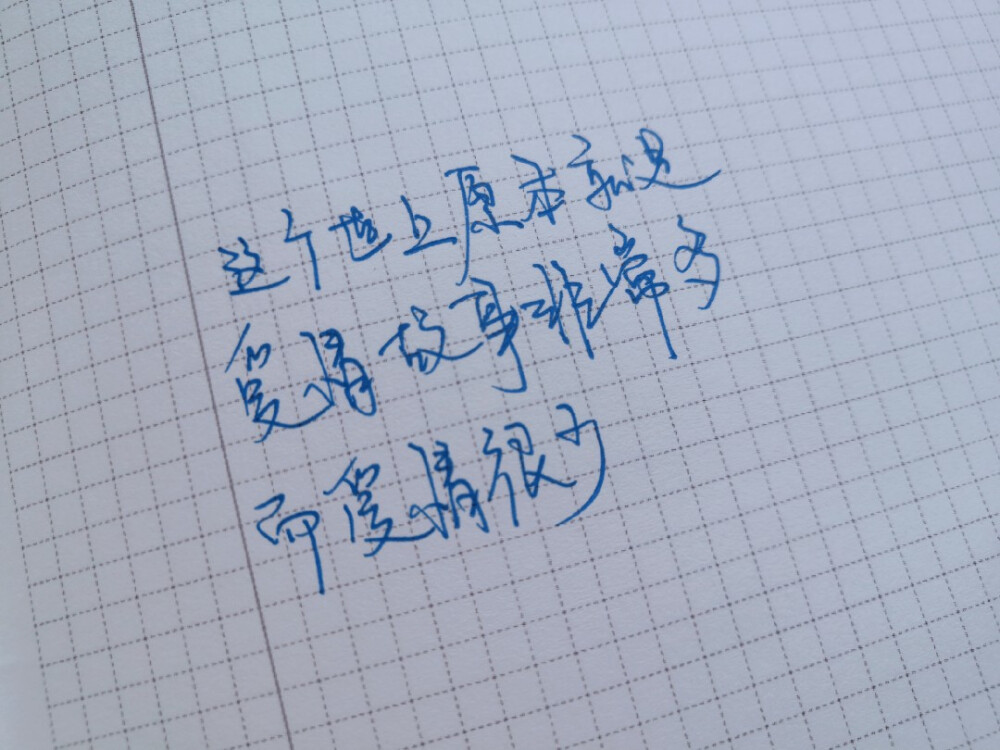 这个世上原本就是
爱情故事非常多
而爱情很少